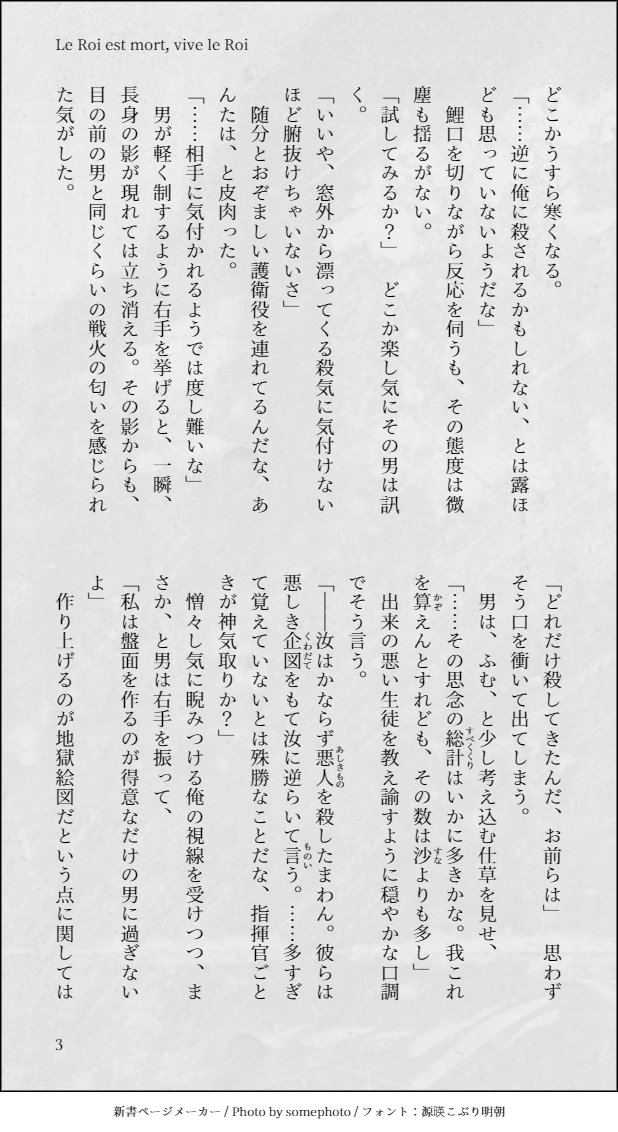 Le Roi est mort, vive le Roi
どこかうすら寒くなる。
「……逆に俺に殺されるかもしれない、とは露ほ
ども思っていないようだな」
　鯉口を切りながら反応を伺うも、その態度は微
塵も揺るがない。
「試してみるか？」　どこか楽し気にその男は訊
く。
「いいや、窓外から漂ってくる殺気に気付けない
ほど腑抜けちゃいないさ」
　随分とおぞましい護衛役を連れてるんだな、あ
んたは、と皮肉った。
「……相手に気付かれるようでは度し難いな」
　男が軽く制するように右手を挙げると、一瞬、
長身の影が現れては立ち消える。その影からも、
目の前の男と同じくらいの戦火の匂いを感じられ
た気がした。
「どれだけ殺してきたんだ、お前らは」　思わず
そう口を衝いて出てしまう。
　男は、ふむ、と少し考え込む仕草を見せ、
「……その思念の総計すべくくりはいかに多きかな。我これ
を算かぞえんとすれども、その数は沙すなよりも多し」
　出来の悪い生徒を教え諭すように穏やかな口調
でそう言う。
「――汝はかならず悪人あしきものを殺したまわん。彼らは
悪しき企図くわだてをもて汝に逆らいて言ものいう。……多すぎ
て覚えていないとは殊勝なことだな、指揮官ごと
きが神気取りか？」
　憎々し気に睨みつける俺の視線を受けつつ、ま
さか、と男は右手を振って、
「私は盤面を作るのが得意なだけの男に過ぎない
よ」
　作り上げるのが地獄絵図だという点に関しては
3
新書ページメーカー / Photo by somephoto / フォント：源暎こぶり明朝